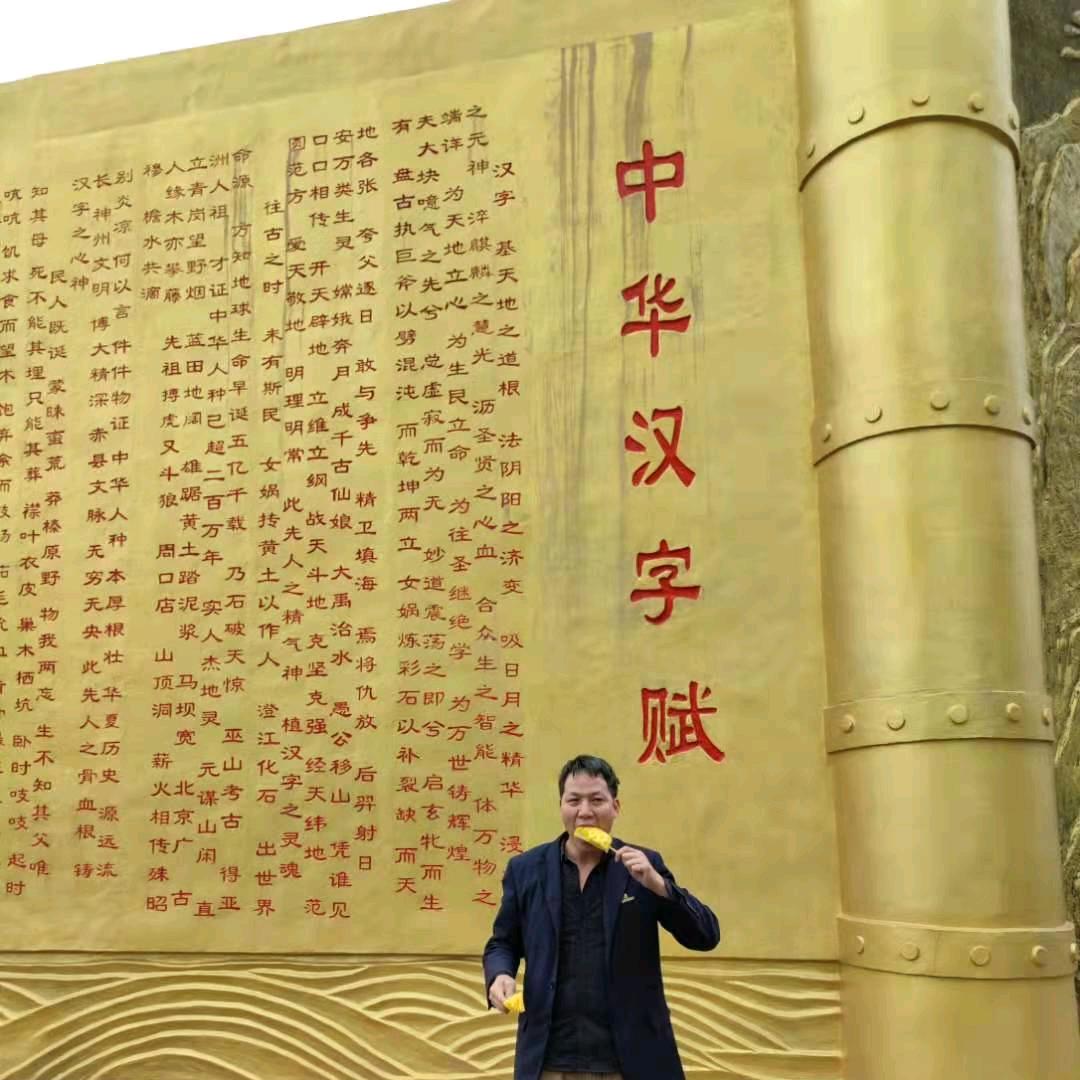 中华汉字赋
汉字 基天地之道根 法阴阳之济变 吸日月之精华 浸
之元神 淬麒麟之慧光 沥圣贤之心血 合众生之智能 体万物之
端详 为天地立心 为生民立命 为往圣继绝学 为万世铸辉煌
夫大块噫气之先兮 总虚寂而为无 妙道震荡之即兮 启玄牝而生
有 盘古执巨斧以劈混沌 而乾坤两立 女娲炼彩石以补裂缺 而天
地各张 夸父逐日 敢与争先 精卫填海 焉将仇放 后羿射日
安万类生灵 嫦娥奔月成千古仙娘 大禹治水 愚公移山 凭谁见
口口相传 开天辟地 立维立纲 战天斗地 克坚克强 经天纬地 范
圆范方 爱天敬地 明理明常 此先人之精气神 植汉字之灵魂
往古之时 未有斯民 女娲抟黄土以作人 澄江化石 出世界
命源 方知地球生命早诞五亿千载 乃石破天惊 巫山考古 得亚
洲人祖 才证中华人种已超二百万年 实人杰地灵 元谋山闲 直
立青岗望野烟 蓝田地阔 雄踞黄土踏泥浆 马坝宽 北京广 古
人缘木亦攀藤 先祖搏虎又斗狼 周口店 山顶洞 薪火相传殊昭
穆 檐水共滴
别炎凉 何以言 件件物证 中华人种 本厚根壮 华夏历史 源远流
长 神州文明 博大精深 赤县文脉 无穷无央 此先人之骨血根 铸
汉字之心神
民人既诞 蒙昧蛮荒 莽榛原野 物我两忘 生不知其父 唯
知其母 死不能其埋 只能其葬 襟叶衣皮 巢木栖坑 卧时吱吱 起时
吭吭 饥求食而望木 饱弃余而